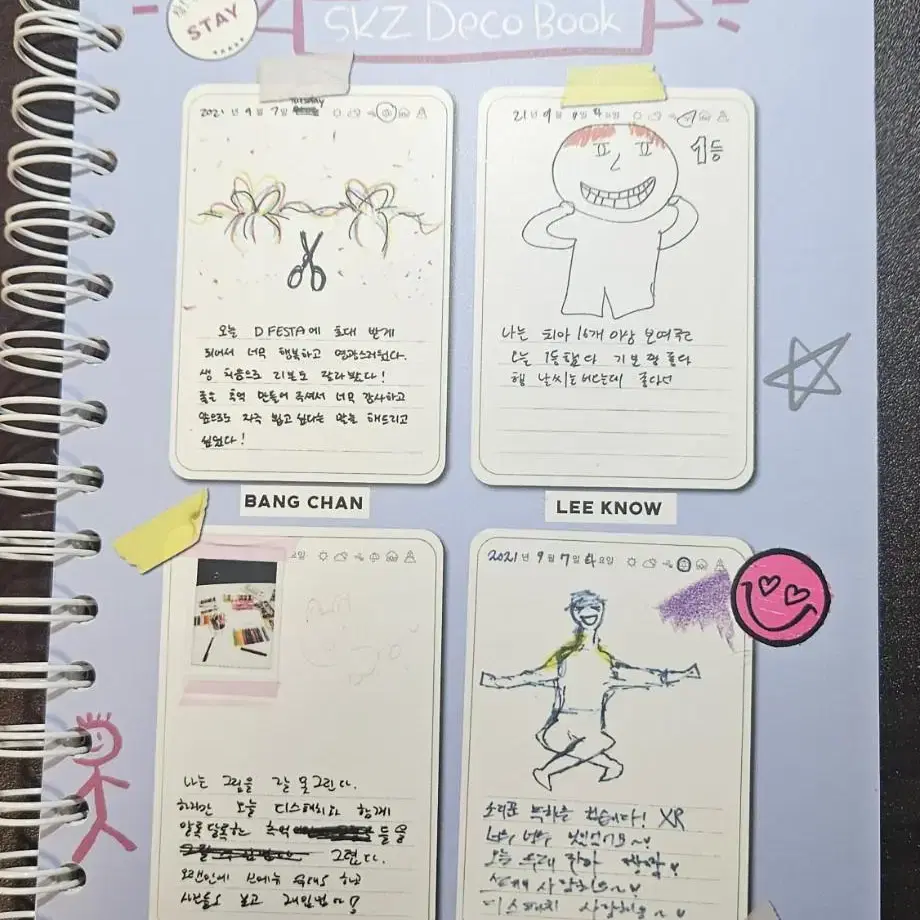 STAY
SKZ Deco Book
2021년 9월 7일 Tuesday
오늘 D FESTA에 초대 받게
되어서 너무 행복하고 영광스러웠다.
생 처음으로 리본도 잘라봤다!
좋은 추억 만들어 주셔서 너무 감사하고
앞으로도 자주 뵙고 싶다는 말을 해드리고
싶었다!
BANG CHAN
21년 9월 일 요일
1등
나는 치아 16개 이상 보여주고
오늘 1등했다 기분 좋다
날씨는 좋다
LEE KNOW
요일
나는 그림을 잘 못그린다.
하지만 오늘 디스패치와 함께
알록달록한 추억 들을
그렸다.
오랜만에
보고
2021년 9월 7일 요일
소리꾼 했습니다! XR
너무 너무 멋있었어요~
오늘
사랑해요~
디스패치 사랑해요~